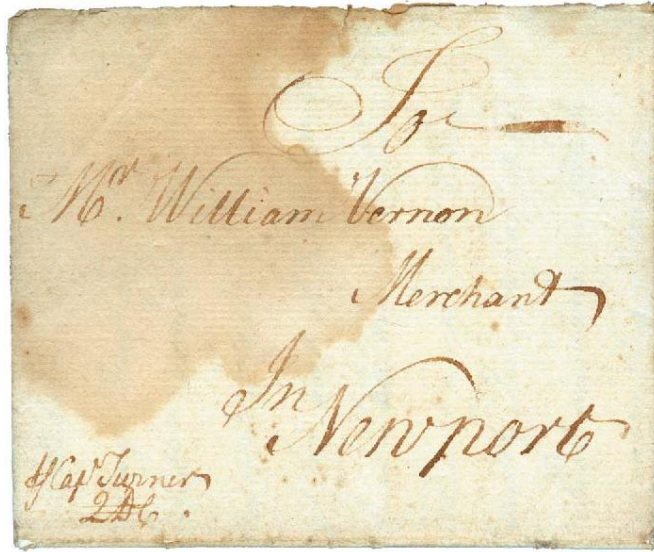 To
Mr. William Vernon
Merchant
In
Newport
Capt Turner